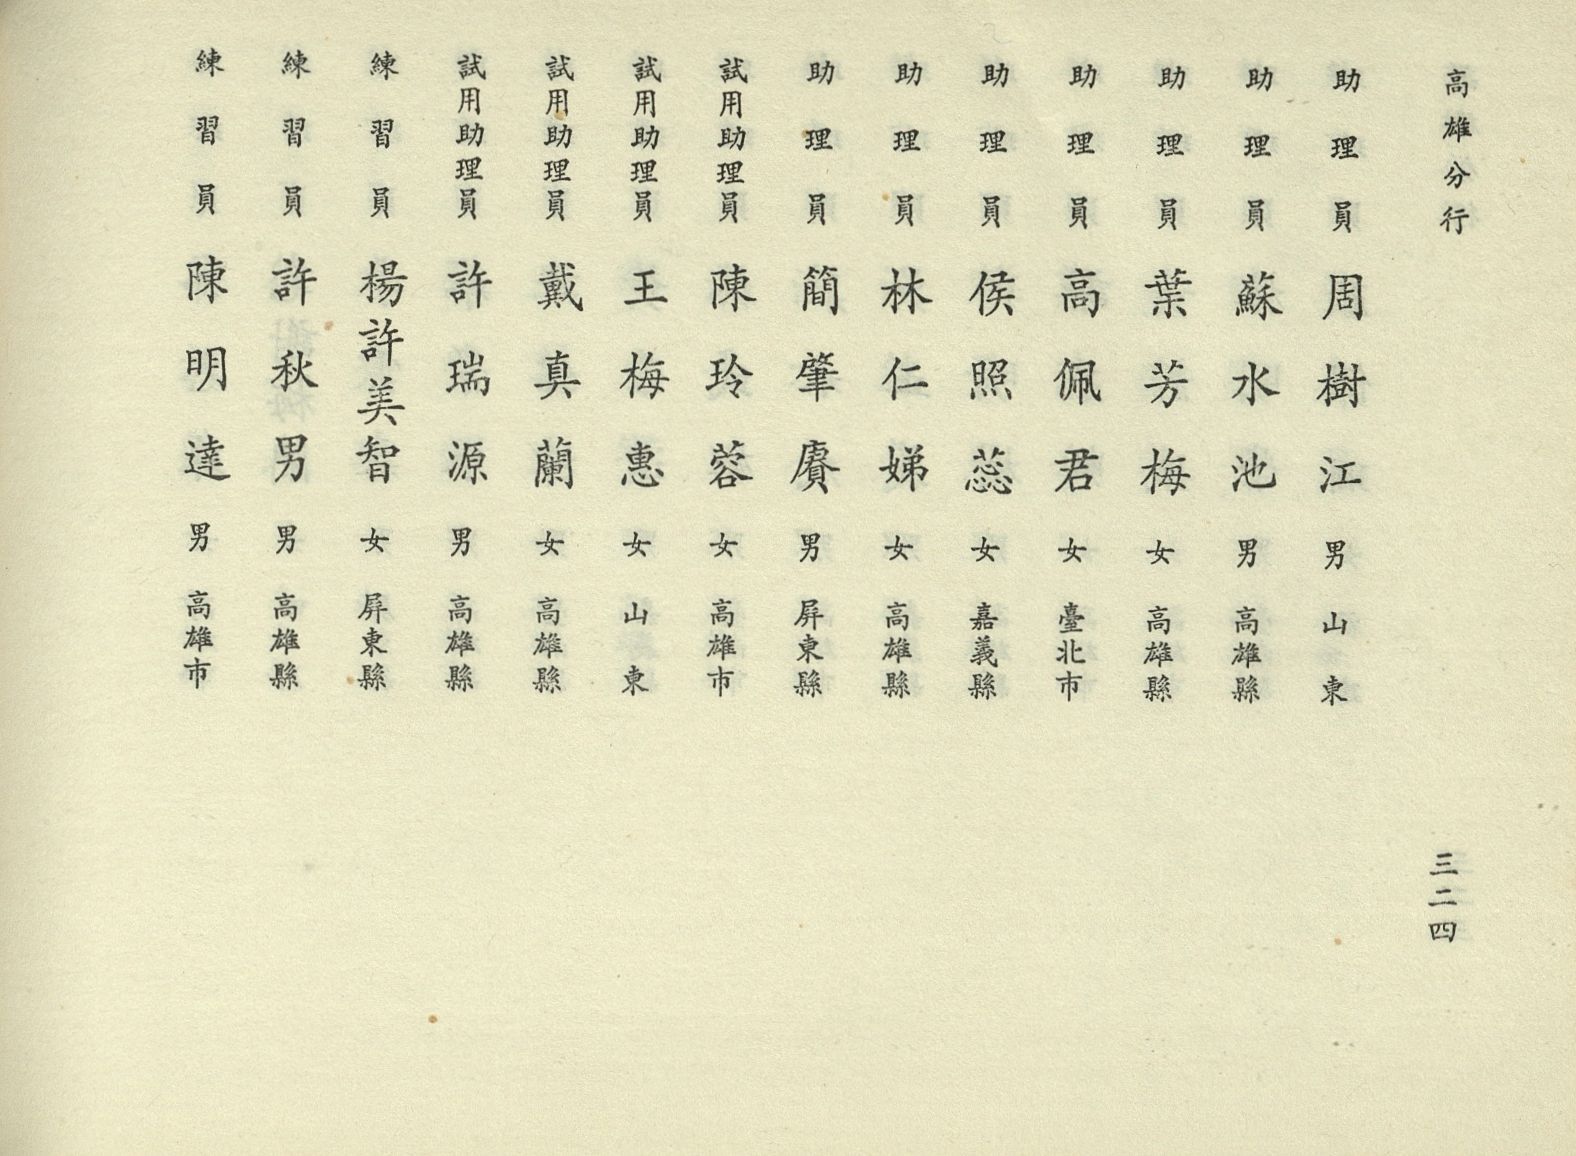 高雄分行
三二四
助理員 周樹江 男 山東
助理員 蘇水池 男 高雄縣
助理員 葉芳梅 女 高雄縣
助理員 高佩君 女 臺北市
助理員 侯照蕊 女 嘉義縣
助理員 林仁娣 女 高雄縣
助理員 簡肇賡 男 屏東縣
試用助理員 陳玲蓉 女 高雄市
試用助理員 王梅惠 女 山東
試用助理員 戴真蘭 女 高雄縣
試用助理員 許瑞源 男 高雄縣
練習員 楊許美智 女 屏東縣
練習員 許秋男 男 高雄縣
練習員 陳明達 男 高雄市